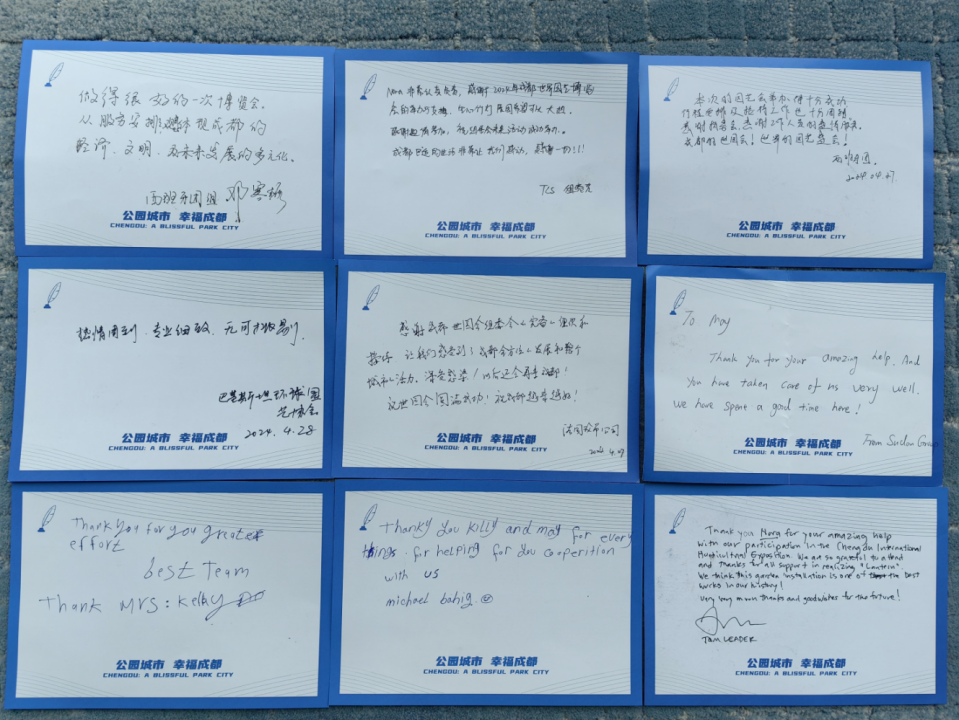 做得很好的一次博览会.
从股方安排 体现成都的
经济、文明、及未来发展的多元化。
西班牙团组
公园城市 幸福成都
CHENGDU: A BLISSFUL PARK CITY
非常认真负责, 感谢 2024年成都世界园艺博览
会的
感谢 参加, 祝 活动成功
成都 的生活非常让我们感动, 感谢一切!!!
TCS
公园城市 幸福成都
CHENGDU: A BLISSFUL PARK CITY
本次的园艺会举办得十分成功
行程安排及接待工作也十分周到
感谢 , 感谢工作人员的盛情
成都的世园会! 世界的园艺盛会!
2024.04.27
公园城市 幸福成都
CHENGDU: A BLISSFUL PARK CITY
热情周到、专业细致、无可挑剔.
巴基斯坦环球园
艺协会
2024. 4.28
公园城市 幸福成都
CHENGDU: A BLISSFUL PARK CITY
感谢成都世园会组委会的 组织和
接待 让我们感受到了成都全方位的发展和整个
城市的活力. 深受感染! 以后还会再来成都!
祝世园会圆满成功! 祝成都越来越好!
法国 公司
公园城市 幸福成都
CHENGDU: A BLISSFUL PARK CITY
To May
Thank you for your amazing help. And
you have taken care of us very well.
we have spent a good time here!
From Group
公园城市 幸福成都
CHENGDU: A BLISSFUL PARK CITY
Thank you for you great
effort
best Team
Thank MRS: Kelly
公园城市 幸福成都
CHENGDU: A BLISSFUL PARK CITY
thanky you Killy and may for every
things for helping for you cooperition
with us
michael bahig
公园城市 幸福成都
CHENGDU: A BLISSFUL PARK CITY
Thank you Nora for your amazing help
with our participation in the Chengdu International
Horticultural Exposition. We are so grateful to attend
and thanks for all support in realizing "Lantern".
We think this garden installation is one of the best
works in our history!
Very very much thanks and good wishes for the future!
TOM LEADER
公园城市 幸福成都
CHENGDU: A BLISSFUL PARK CITY